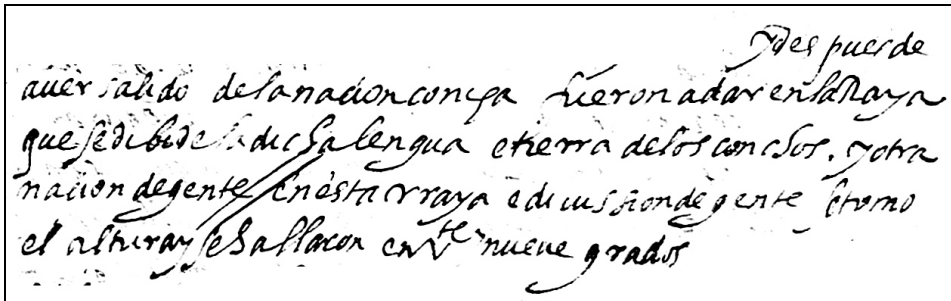 y des pues de
aver salido de la nacion concha fueron a dar en la Raya
que se dibide la dicha lengua e tierra de los conchos. y otra
nacion de gente / En esta rraya e divission de gente se tomo
el altura y se hallaron en Vte nueve grados